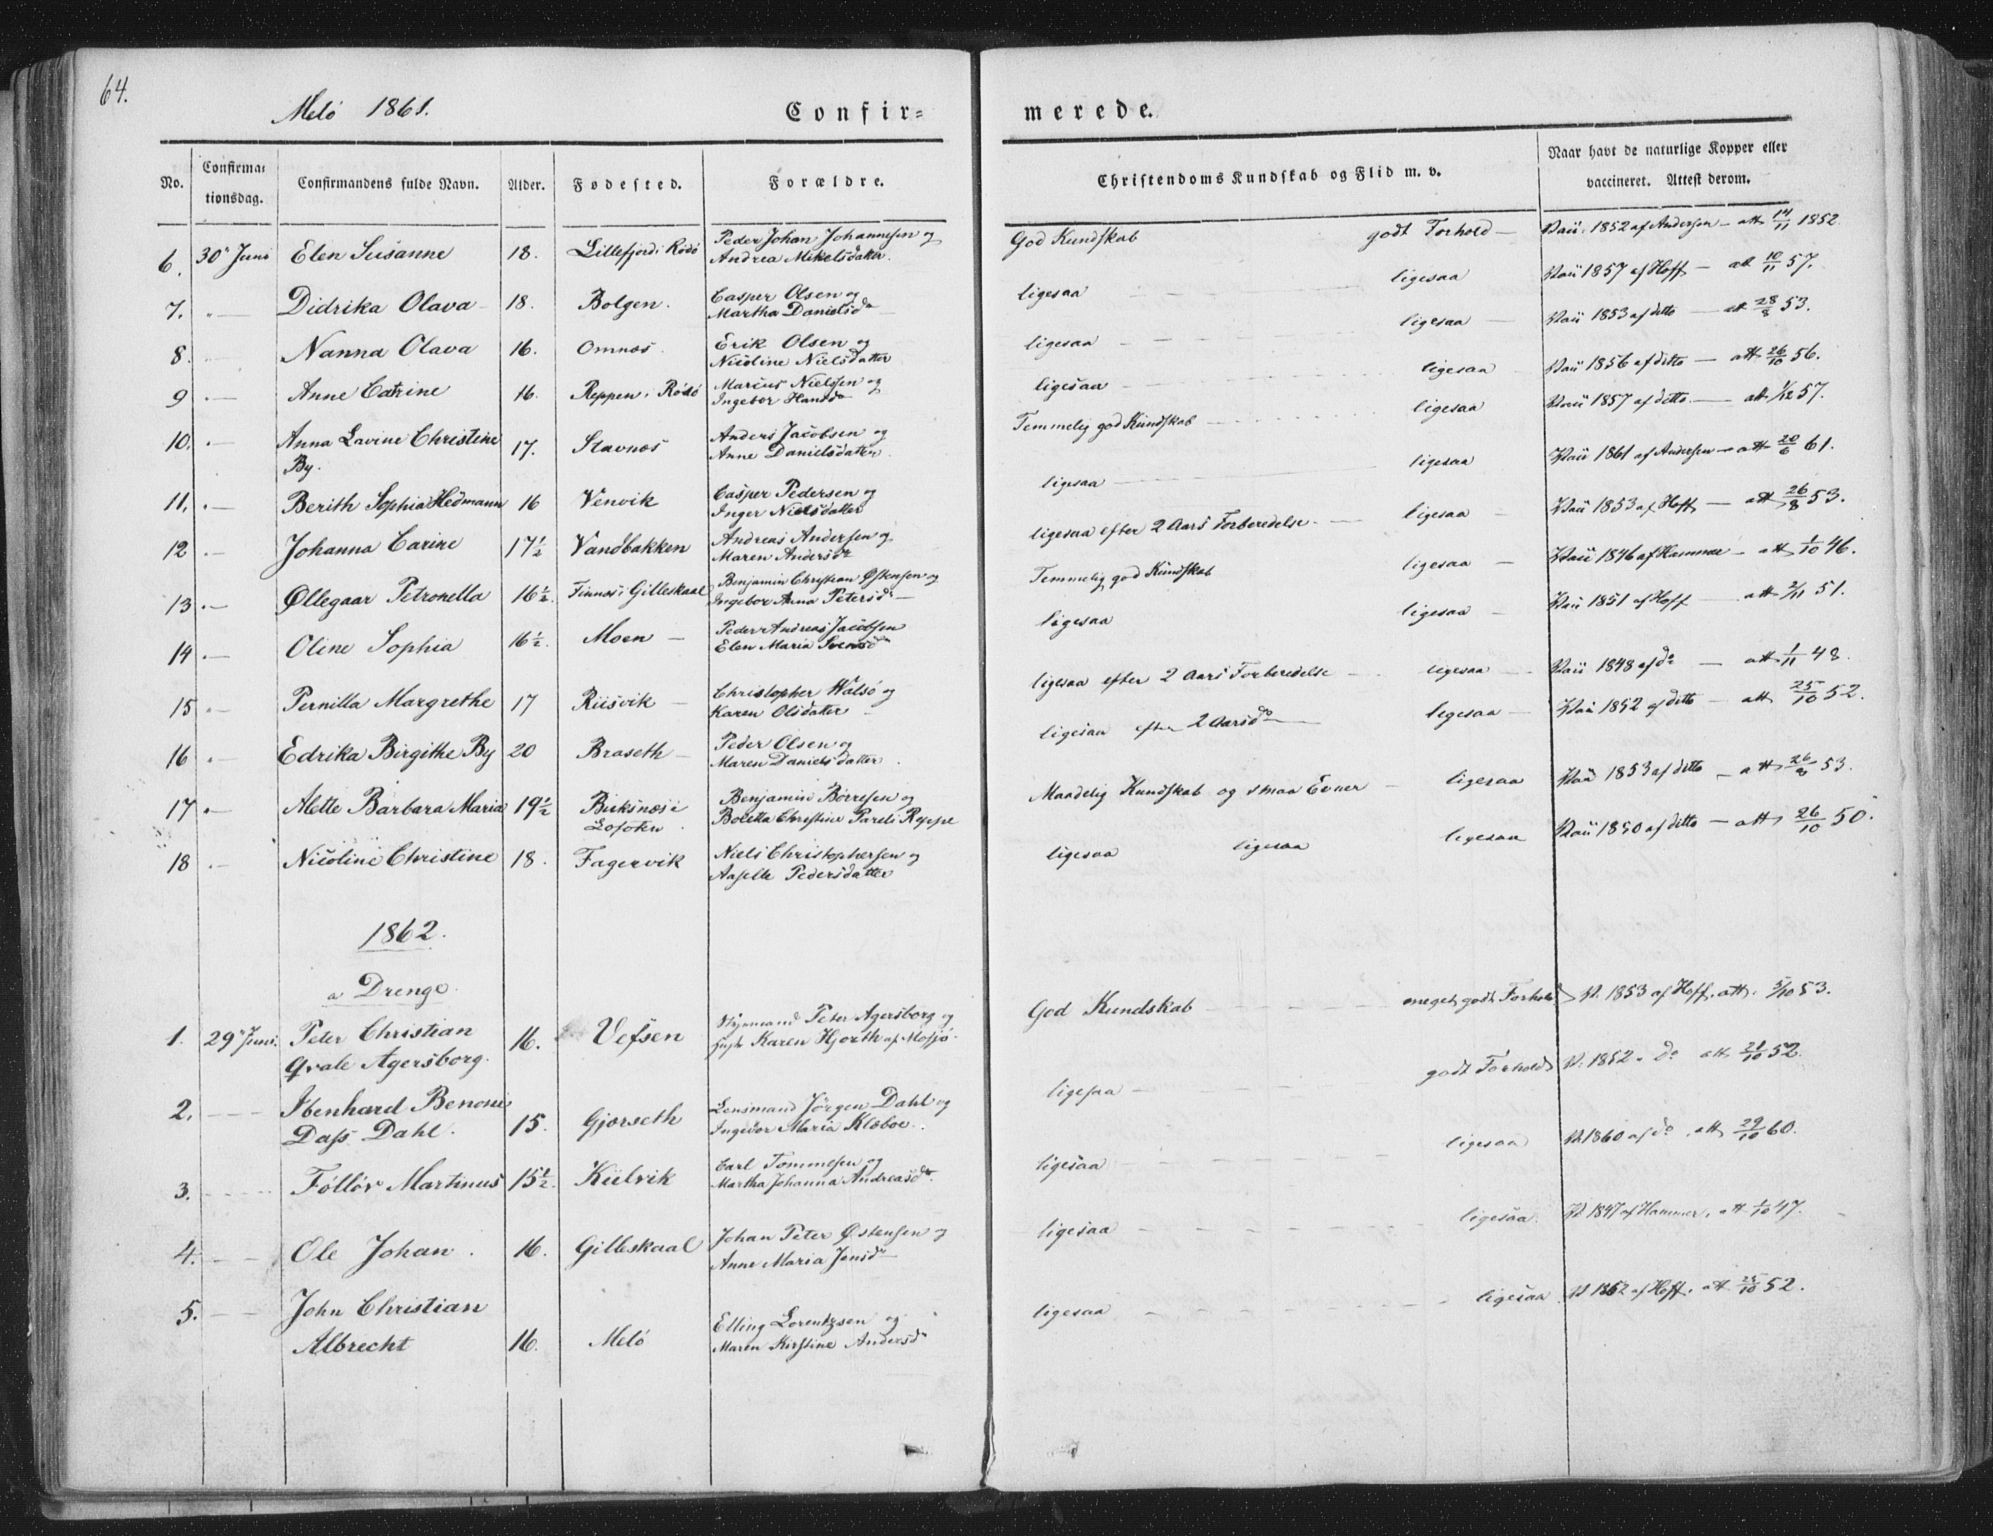 64.
Melö 1861.
Confir=
merede.
No.
Confirma=
tionsdag.
Confirmandens fulde Navn.
Alder.
Fødested.
Forældre.
Christendoms Kundskab og Flid m. v.
Naar havt de naturlige Kopper eller
vaccineret. Attest derom.
6. 30" Juni Elen Susanne 18. Lillefjord i Rödö Peder Johan Johannesen og
Andrea Mikelsdatter. God Kundskab godt Forhold — Vaii. 1852 af Andersen — att 14/11 1852.
7. " — Didrika Olava 18. Bolgen. Casper Olsen og
Martha Danielsdr ligesaa — ligesaa Vaii 1857 af Hoff — att 10/11 57.
8. — Nanna Olava 16. Omnæs. Erik Olsen og
Nicoline Nielsdatter ligesaa — ligesaa — Vaii 1853 af ditto — att 28/8 53.
9 " — Anne Catrine 16. Reppen i Rödö Marcus Nielsen og
Ingebor Hansdr ligesaa — ligesaa Vaii 1856 af ditto — att 26/10 56.
10. " — Anna Lavine Christine
By. 17. Stavnæs Anders Jacobsen og
Anne Danielsdatter. Temmelig god Kundskab — ligesaa Vaii 1857 af ditto. — att 1/12 57.
11. " — Berith Sophia Hedmann 16 Venvik Casper Pedersen og
Inger Nielsdatter ligesaa — ligesaa Vaii 1861 af Andersen — att 20/6 61.
12 " — Johanna Carine 17½ Vandbakken Andreas Andersen og
Maren Andersdr ligesaa efter 2 Aars Forberedelse. — ligesaa — Vaii 1853 af Hoff — att 26/8 53.
13 " — Øllegaar Petronella 16½. Finnæs i Gilleskaal Benjamin Christian Østensen og
Ingebor Anna Petersdr — Temmelig god Kundskab ligesaa — Vaii 1846 af Hammer — att 1/10 46.
14 " — Oline Sophia 16½. Moen — Peder Andreas Jacobsen
Elen Maria Svensdr ligesaa ligesaa — Vaii 1851 af Hoff — att 2/11 51.
15 " — Pernilla Margrethe 17 Riisvik — Christopher Walsö og
Karen Olsdatter ligesaa efter 2 Aars Forberedelse — ligesaa — Vaii 1848 af do — att 1/11 48.
16 " — Edrika Birgithe By 20 Braseth — Peder Olsen og
Maren Danielsdatter. ligesaa efter 2 Aars do — ligesaa — Vaii 1852 af ditto — att 25/10 52.
17 " — Alette Barbara Maria 19½ Birksnæs i
Lofoten. Benjamin Börresen og
Boletta Christine Pareli Reppe Maadelig Kundskab og smaa Evner — ligesaa Vaii 1853 af ditto — att 26/8 53.
18 " — Nicoline Christine 18. Fagervik Niels Christophersen og
Aaselle Pedersdatter ligesaa ligesaa ligesaa Vaii 1850 af ditto — att 26/10 50.
1862.
a Drenge.
1. 29" Juni. Peter Christian
Qvale Agersborg. 16. Vefsen Styrmand Peter Agersborg og
Karen Hjorth af Mosjö. God Kundskab — meget godt Forhold V. 1853 af Hoff. att. 5/10 53.
2. — — Ibenhard Benoni
Dass Dahl. 15. Gjerseth Lensmand Jörgen Dahl og
Ingebor Maria Klæboe. ligesaa — godt Forhold V. 1852 " do att 21/10 52.
3. Föllör Martinus 15½. Kiilvik Carl Tommesen og
Martha Johanna Andreasdr. ligesaa — ligesaa V. 1860 af do. att 29/10 60.
4. — — Ole Johan. 16. Gilleskaal Johan Peter Østensen og
Anne Maria Jensdr ligesaa — ligesaa. V. 1847 af Hammer. att 1/10 47.
5. — — John Christian
Albrecht 16. Melö Elling Lorentzsen og
Maren Kirstine Andersdr ligesaa — ligesaa. V 1852 af Hoff. att 25/10 52.